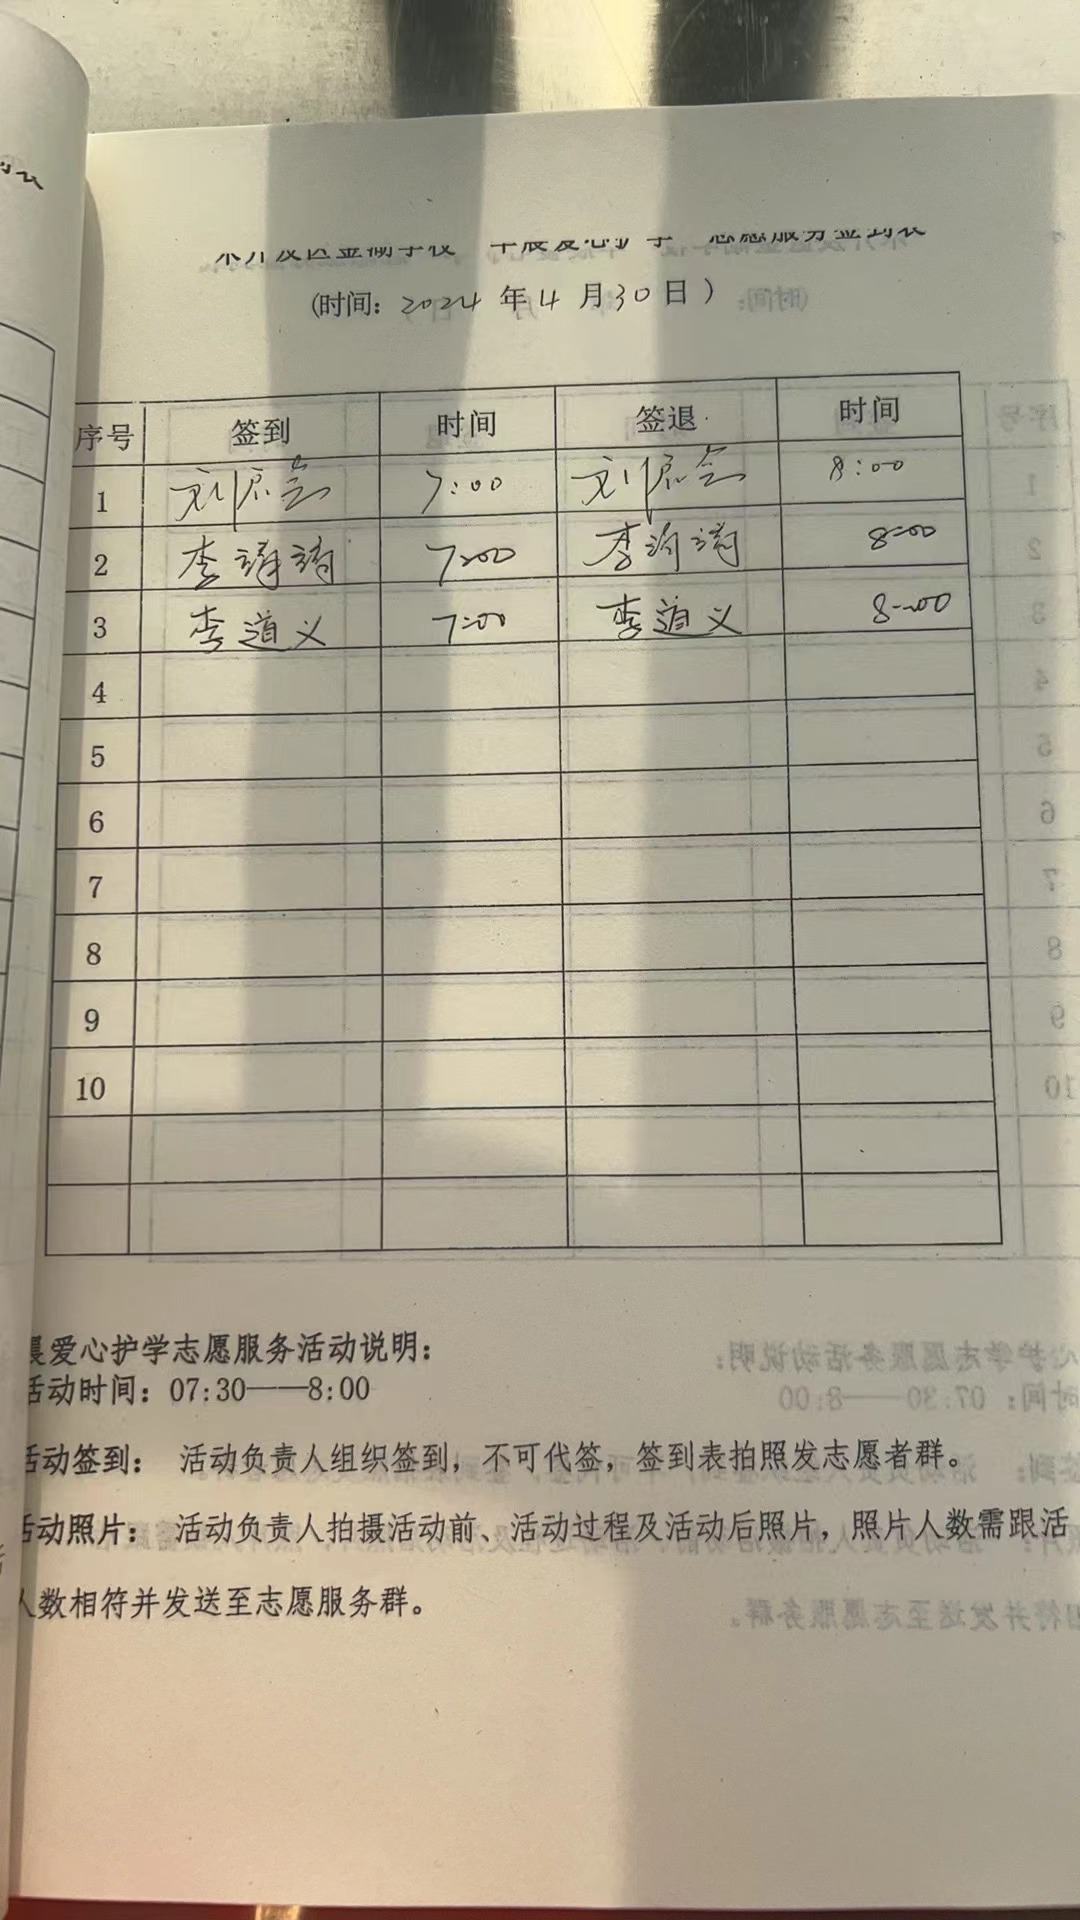 (时间：2024年4月30日)
序号 签到 时间 签退 时间
1 刘 7:00 刘 8:00
2 李 7:00 李 8:00
3 李道义 7:00 李道义 8:00
4
5
6
7
8
9
10
晨爱心护学志愿服务活动说明：
活动时间：07:30——8:00
活动签到： 活动负责人组织签到，不可代签，签到表拍照发志愿者群。
活动照片： 活动负责人拍摄活动前、活动过程及活动后照片，照片人数需跟活
人数相符并发送至志愿服务群。